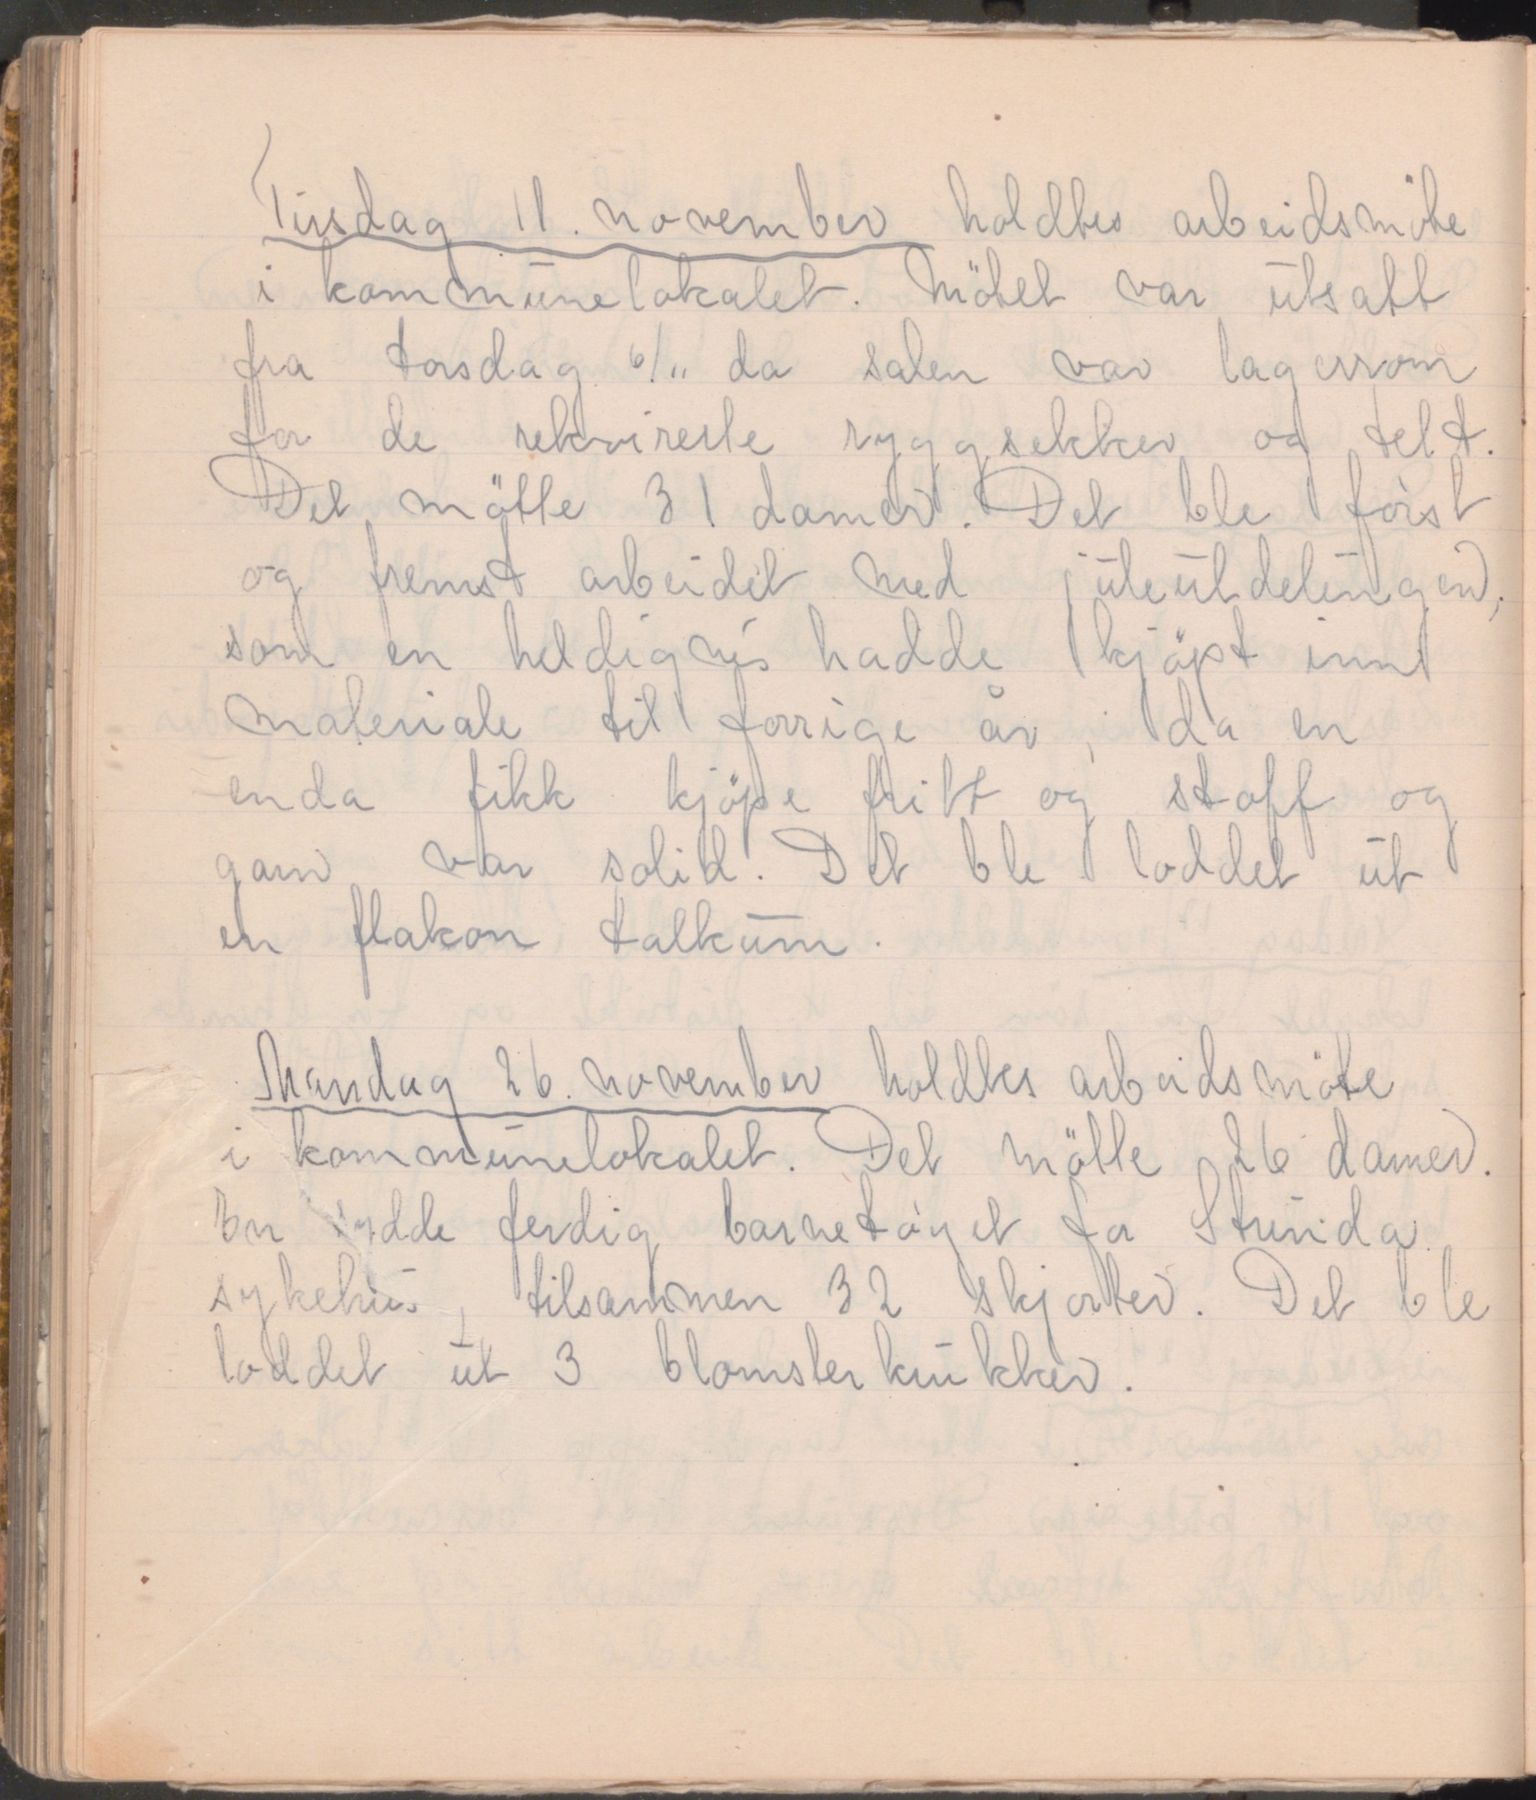 Tirsdag 11. november holdtes arbeidsmöte
i kommunelokalet. Mötet var utsatt
fra torsdag 6/11 da salen var lagerrom
for de rekvirerte ryggsekker og telt.
Det mötte 31 damer. Det ble først
og fremst arbeidet med juleutdelingen,
som en heldigvis hadde kjöpt inn
materiale til forrige år, da en
enda fikk kjöpe fritt og stoff og
garn var solid. Det ble loddet ut
en flakon talkum.
Mandag 26. november holdtes arbeidsmöte
i kommunelokalet. Det mötte 26 damer.
En sydde ferdig barnetøyet for Strinda
sykehus, tilsammen 32 skjorter. Det ble
loddet ut 3 blomsterkrukker.